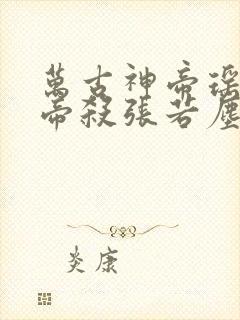 萬古神帝瑶
帝殺張若塵
炎康